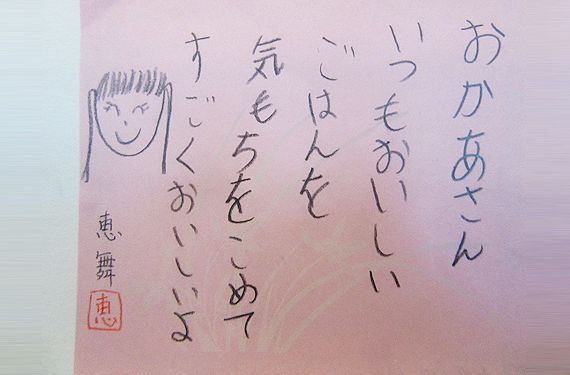 おかあさん
いつもおいしい
ごはんを
気もちをこめて
すごくおいしいよ
恵舞
恵